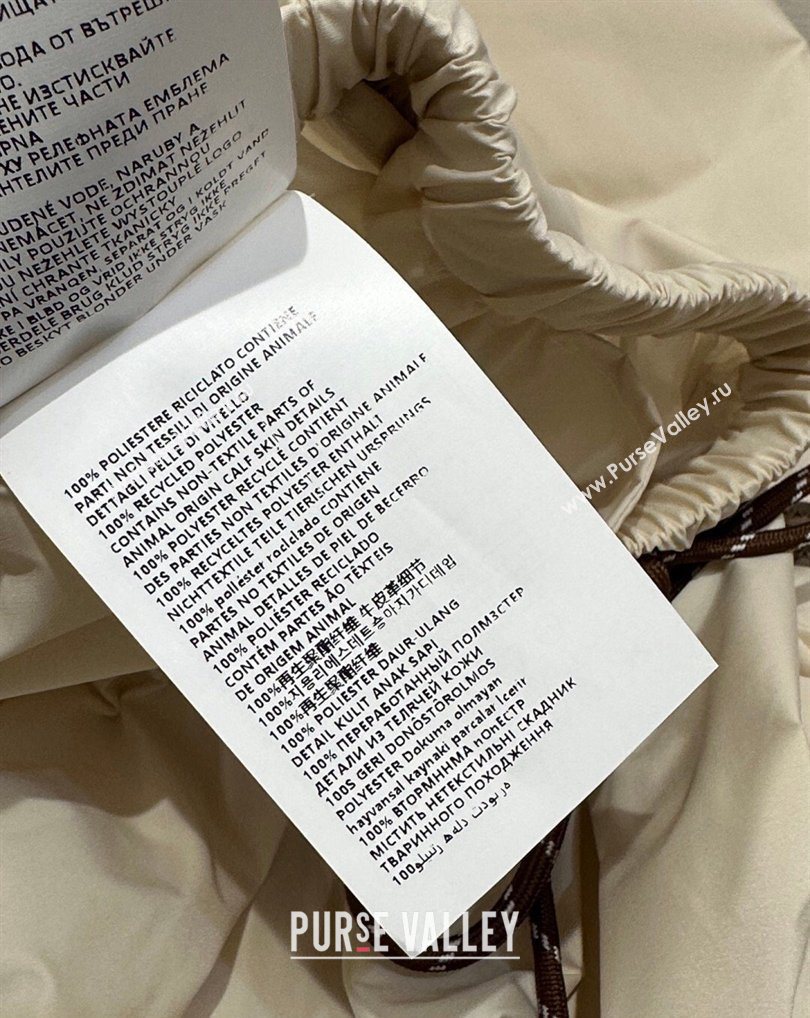 ОДА ОТ ВЪТРЕШ
НЕ ИЗСТИСКВАЙТЕ
ЕНИТЕ ЧАСТИ
ХУ РЕЛЕФНАТА ЕМБЛЕМА
НТЕЛИТЕ ПРЕДИ ПРАНЕ
UDENÉ VODE, NARUBY A
NEMÁCET, NE ZDIMAT NEŽEHLIT
ILY POUŽUTE OCHRANNOU
OU NEŽEHLETE WYSTOUPLÉ LOGO
NI CHRANTE TKANICKY
PA VRANQEN, SEPARAT OG I KOLDT VAND
KE I BLBD OG VRID IKKE STRYG IKKE
VERDELE BRUG KLUD STRYG IKKE PREGET
O BESKYT BLONDER UNDER VASK
100% POLIESTERE RICICLATO CONTIENE
PARTI NON TESSILI DI ORIGINE ANIMALE
DETTAGLI PELLE DI VITELLO
100% RECYCLED POLYESTER
CONTAINS NON-TEXTILE PARTS OF
ANIMAL ORIGIN CALF SKIN DETAILS
100% POLYESTER RECYCLE CONTIENT
DES PARTIES NON TEXTILES D'ORIGINE ANIMALE
100% RECYCELTES POLYESTER ENTHALI
NICHTTEXTILE TEILE TIERISCHEN URSPRUNGS
100% poliéster roclclado CONTIENE
PARTES NO TEXTILES DE ORIGEN
ANIMAL DETALLES DE PIEL DE BECERRO
100% POLIÉSTER RECICLADO
CONTÉM PARTES ÃO TÉXTEIS
DE ORIGEM ANIMAL
100%再生聚酯纤维 牛皮革细节
100%지응리에스데트 송아지가디데임
100%再生聚酯纤维
100% POLIESTER DAUR ULANG
DETAIL KULIT ANAK SAPI
100% ПЕРЕРАБОТАННЫЙ ПОЛМЭСТЕР
ДЕТАЛИ ИЗ ТЕЛЯЧЕЙ КОЖИ
100S GERI DONÖSTÖROLMOS
POLYESTER Dokuma olmayan
hayvansal kaynaki parcalar Icerir
100% ВТОРМННМА пОНЕСТР
МІСТИТЬ НЕТЕКСТИЛЬНІ СКАДНИК
ТВАРИННОГО ПОХОДЖЕННЯ
www.PurseValley.ru
PURSE VALLEY